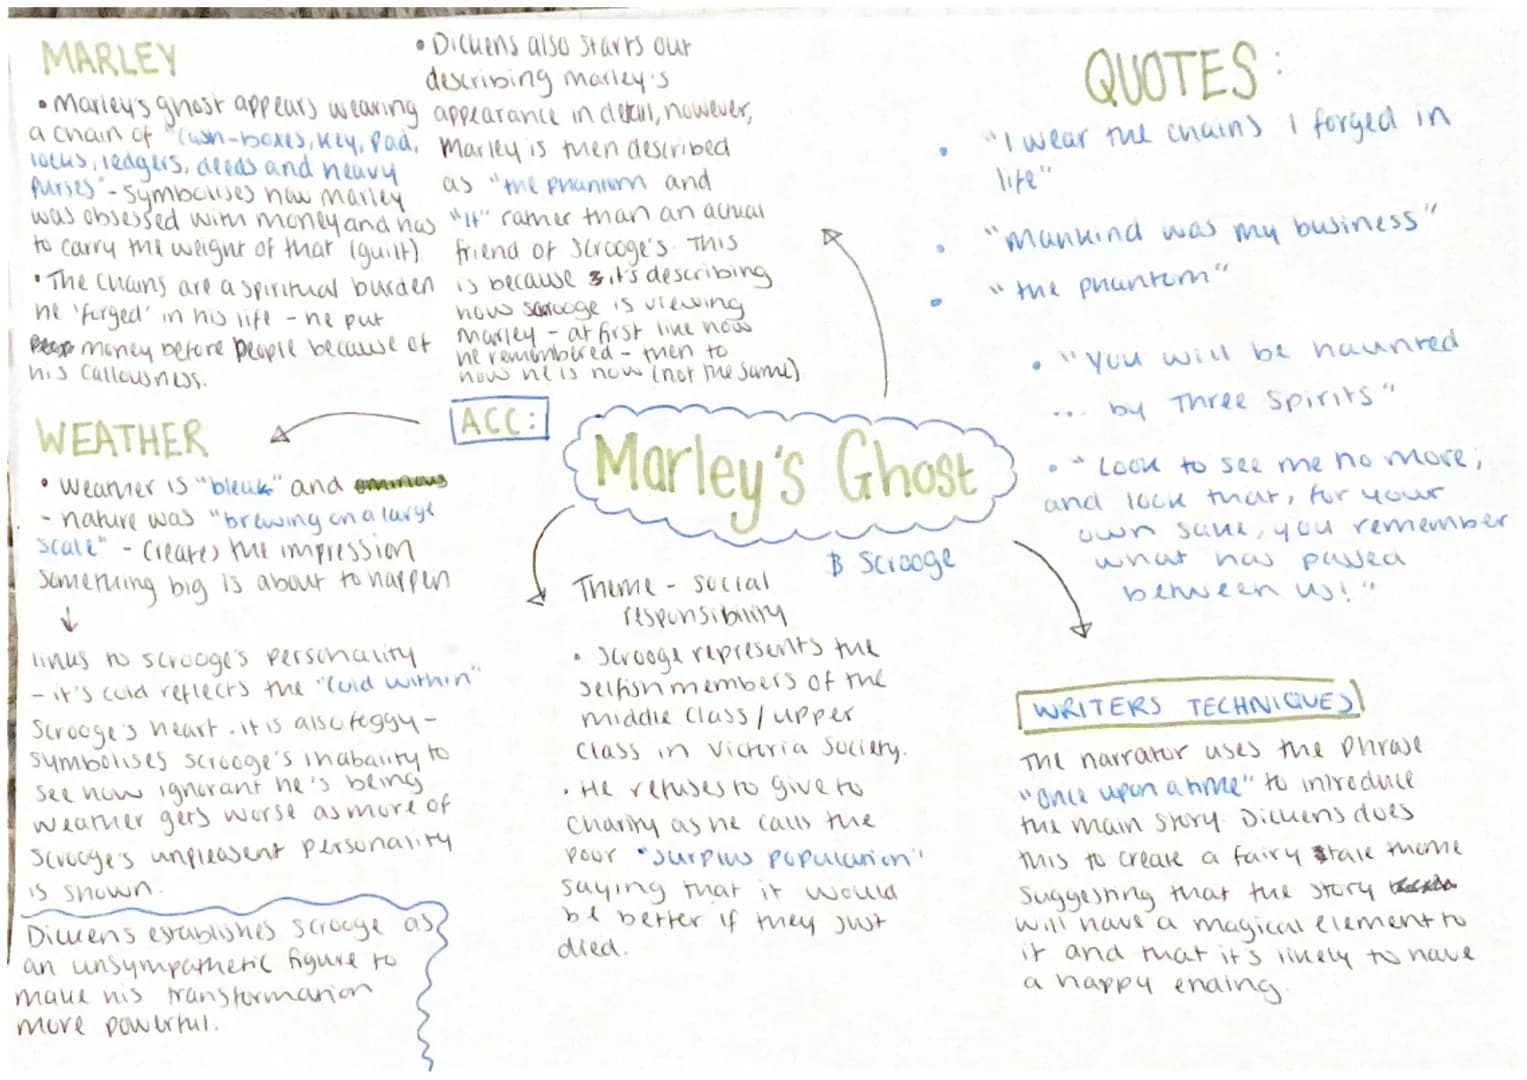 MARLEY
• Marley's ghost appears wearing
a chain of "cash-boxes, key, pad,
locks, ledgers, deeds and heavy
purses" - symbolises how Marley
was obsessed with money and has
to carry the weight of that (guilt).
• The chains are a spiritual burden
he 'forged' in his life - he put
money before people because of
his callousness.
• Dickens also starts out
describing marley's
appearance in detail, however,
Marley is then described
as "the phantom and
"It" rather than an actual
friend of Scrooge's. This
is because it's describing
how scrooge is viewing
Marley - at first like how
he remembered - then to
how he is now (not the same)
QUOTES:
• "I wear the chains I forged in
life"
• "Mankind was my business"
• "the phantom"
• "You will be haunted
... by Three Spirits"
• "Look to see me no more;
and look that, for your
own sake, you remember
what has passed
between us!"
WEATHER
• Weather is "bleak" and ominous
- nature was "brewing on a large
scale" - creates the impression
something big is about to happen
↓
links to scrooge's personality
- it's cold reflects the "cold within"
Scrooge's heart. it is also foggy -
symbolises scrooge's inabality to
see how ignorant he's being
weather gets worse as more of
Scrooge's unpleasent personality
is shown.
Dickens establishes scrooge as
an unsympathetic figure to
make his transformation
more powerful.
ACC:
Marley's Ghost
$ Scrooge
Theme - social
responsibility
• Scrooge represents the
selfish members of the
middle class / upper
class in Victoria Society.
• He refuses to give to
charity as he calls the
poor "surplus population"
saying that it would
be better if they just
died.
WRITERS TECHNIQUES
The narrator uses the phrase
"Once upon a time" to introduce
the main story. Dickens does
this to create a fairy tale theme
suggesting that the story
will have a magical element to
it and that it's likely to have
a happy ending.